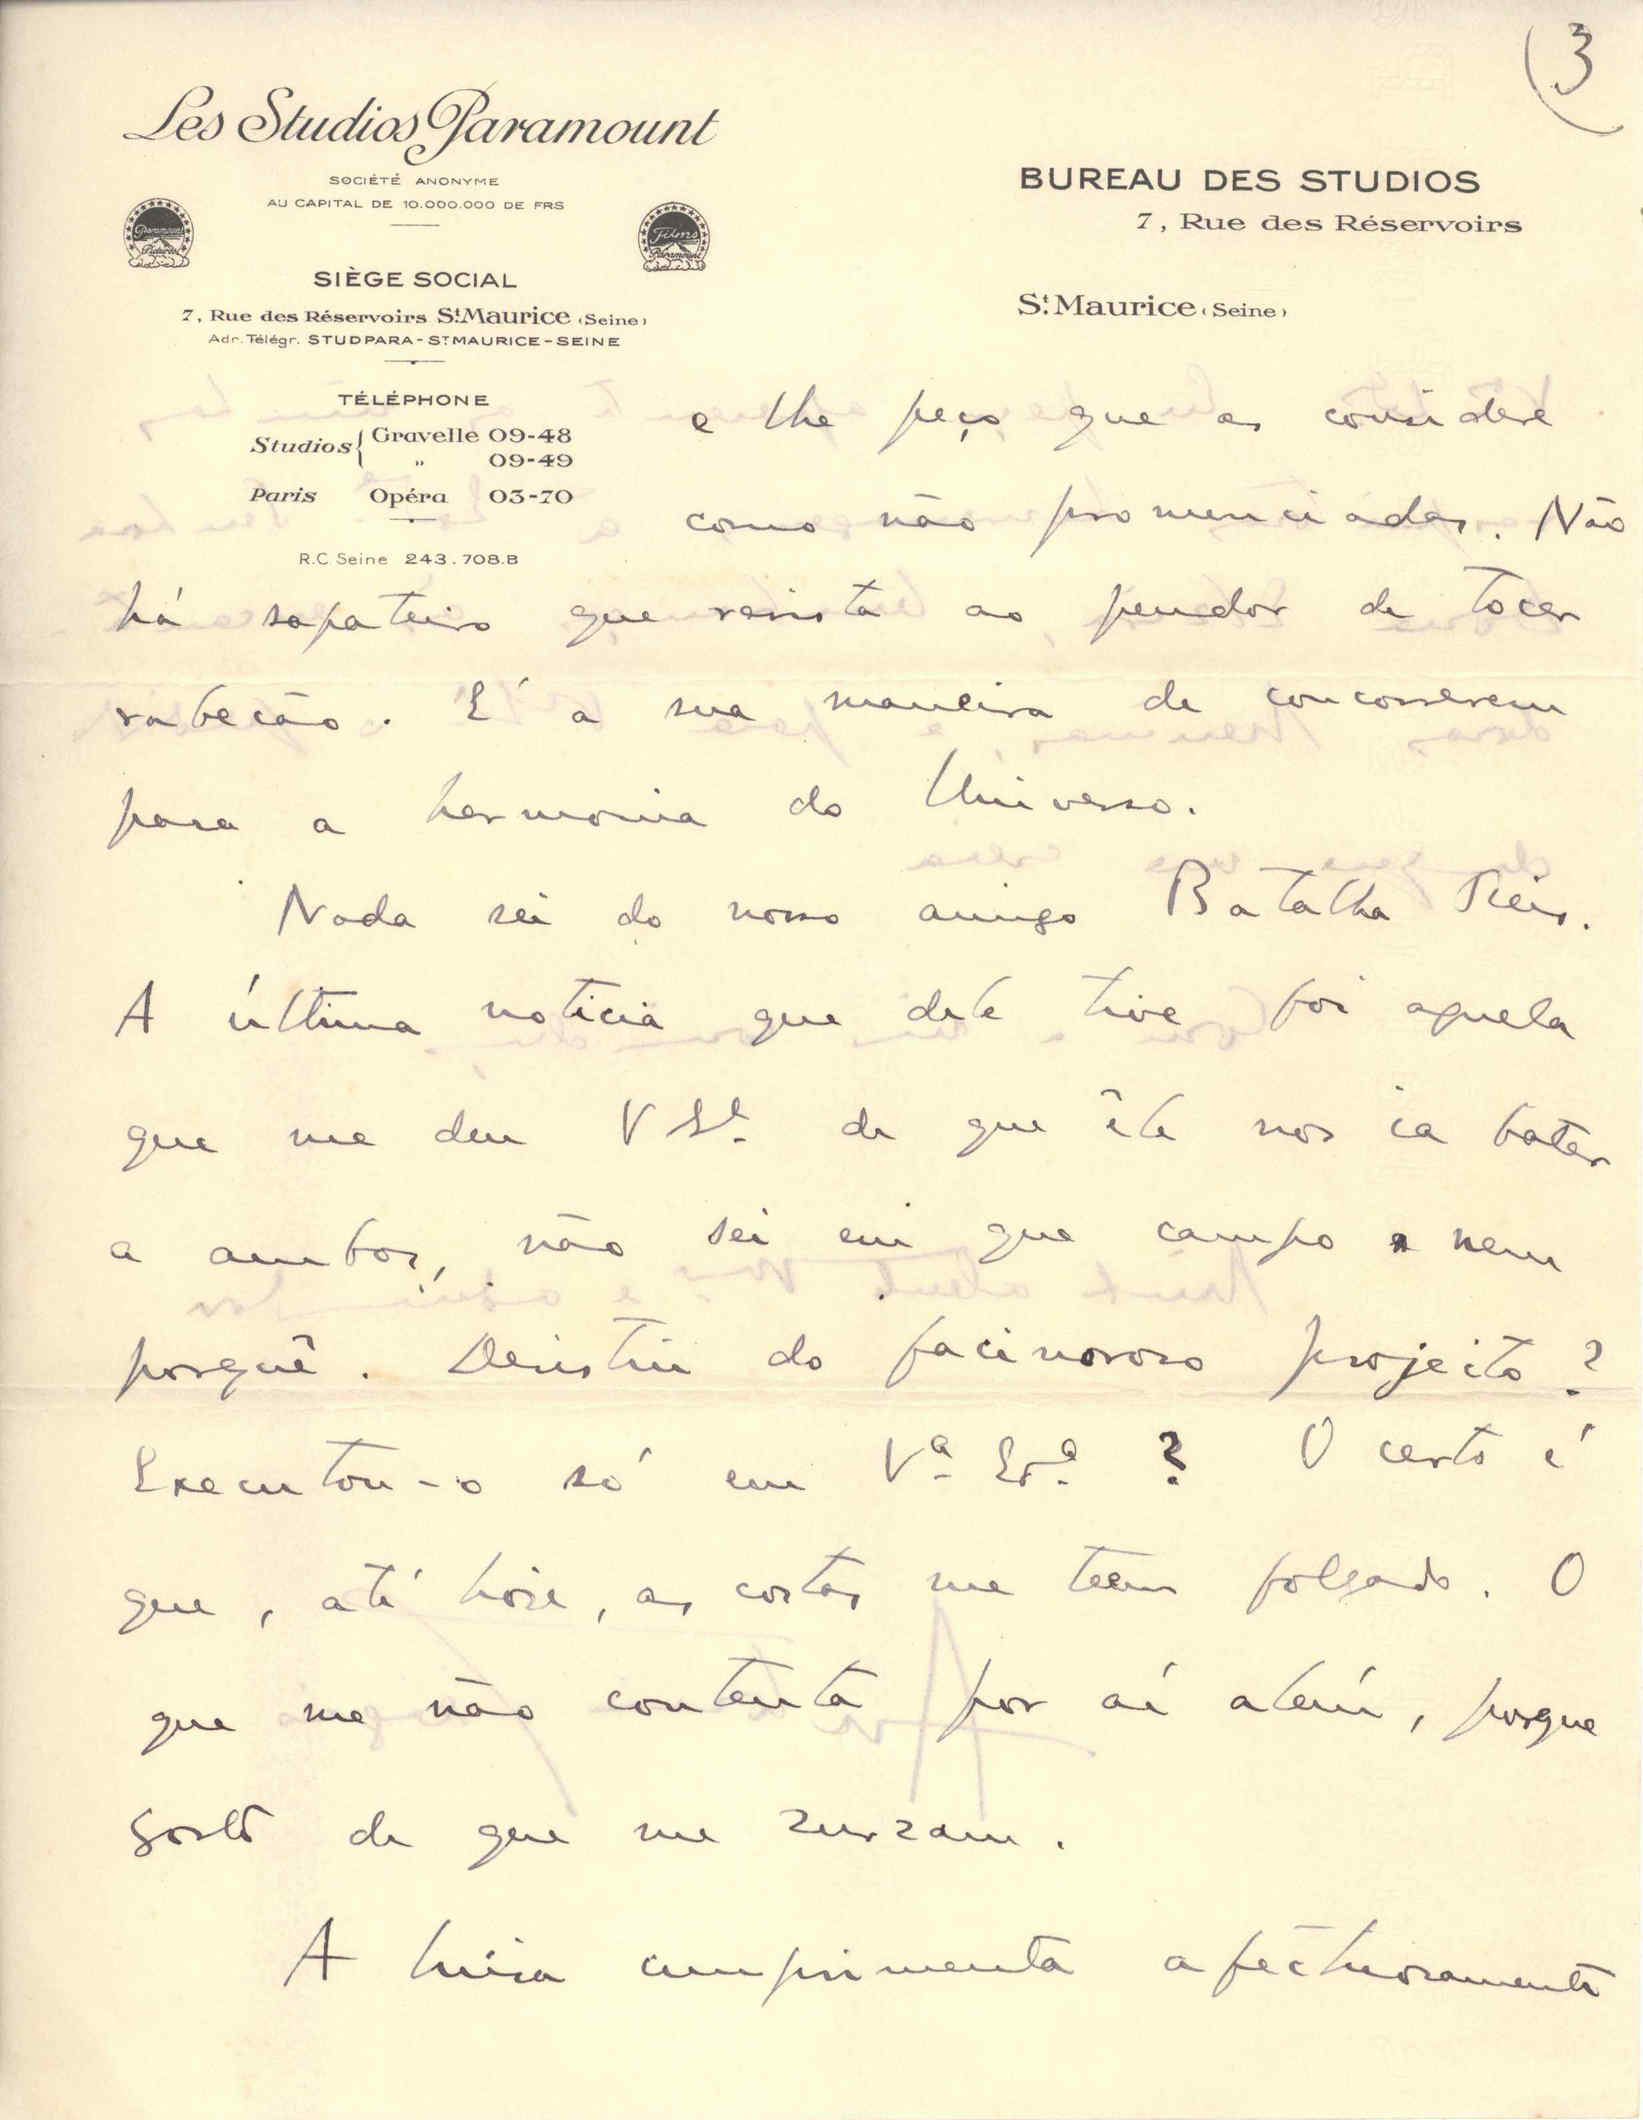 3
Les Studios Paramount
SOCIÉTÉ ANONYME
AU CAPITAL DE 10.000.000 DE FRS
Paramount Pictures
Films Paramount
SIÈGE SOCIAL
7, Rue des Réservoirs St. Maurice (Seine)
Adr. Télégr. STUDPARA-ST MAURICE-SEINE
TÉLÉPHONE
Studios { Gravelle 09-48
" 09-49
Paris Opéra 03-70
R.C. Seine 243.708.B
BUREAU DES STUDIOS
7, Rue des Réservoirs
St. Maurice (Seine)
e lhe peço que as considere
como não pronunciadas. Não
há sapateiro que resista ao pendor de tocar
rabecão. É a sua maneira de concorrerem
para a harmonia do Universo.
Nada sei do nosso amigo Batalha Reis.
A última noticia que dele tive foi aquela
que me deu V. de que êle nos ia bater
a ambos, não sei em que campo nem
porquê. Desistiu do facinoroso projecto?
Executou-o só em Vª Exª? O certo é
que, até hoje, as costas me teem folgado. O
que me não contenta por aí alem, porque
gosto de que me zurzam.
A Luisa cumprimenta afectuosamente